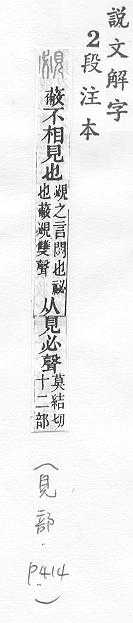 說文解字
2段注本
覕 蔽不相見也 覕之言閟也祕也蔽覕雙聲 从見必聲 莫結切十二部
(見部.P414)